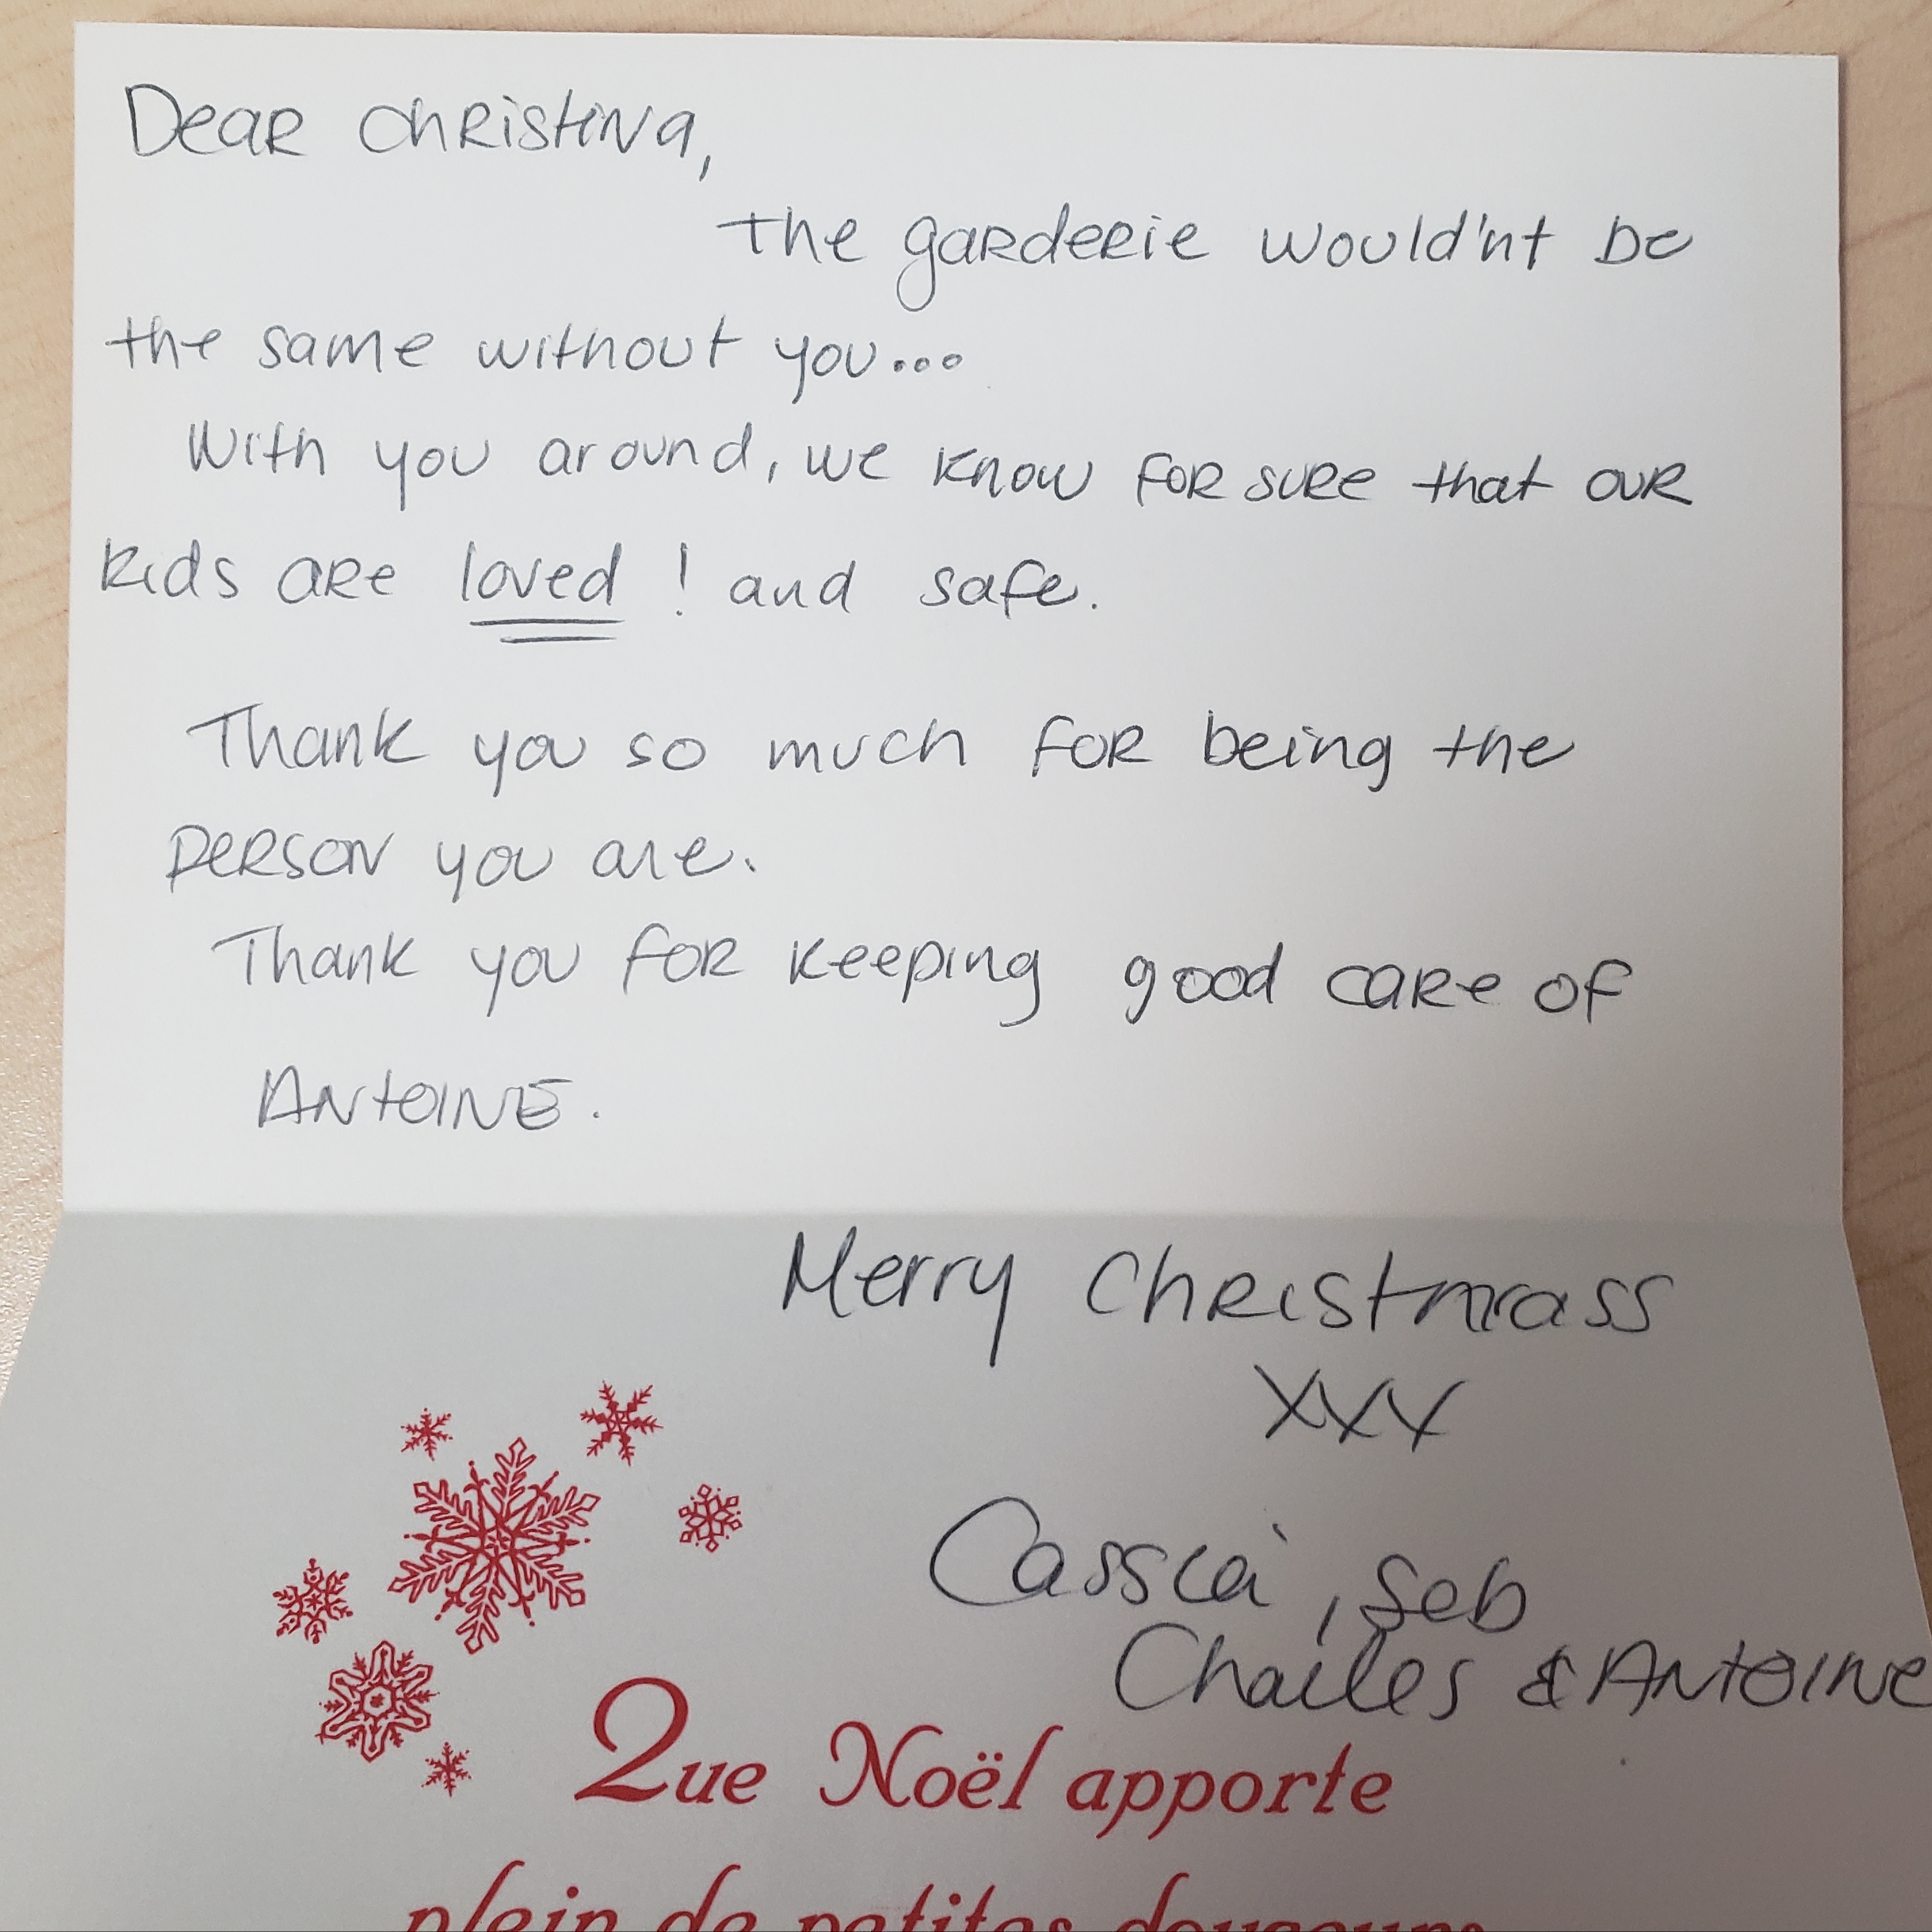 Dear Christina,
the garderie would'nt be
the same without you...
With you around, we know for sure that our
kids are loved ! and safe.
Thank you so much for being the
person you are.
Thank you for keeping good care of
Antoine.
Merry Christmass
xxx
Cassia, Seb
Charles & Antoine
Que Noël apporte
plein de petites douceurs